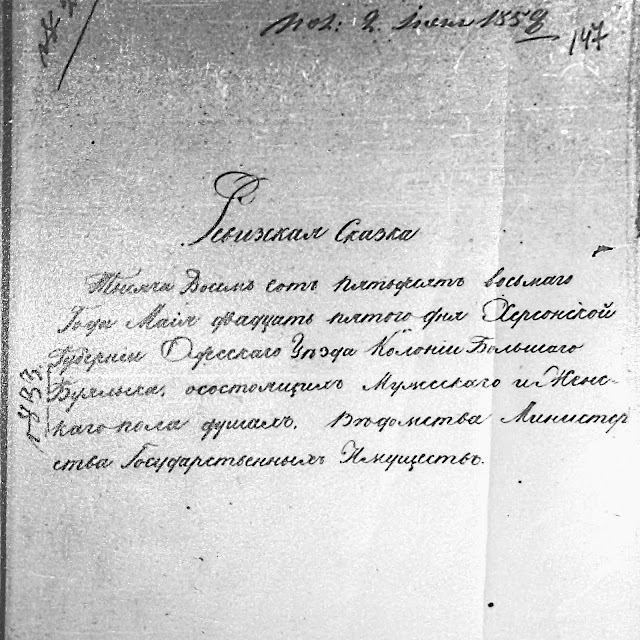 пол: 2. Июня 1858
147
Ревижская Сказка
Тысяча Восемь сотъ пятьдесятъ восьмаго
Года Маія двадцать пятого дня Херсонской
Губерніи Одесскаго Уѣзда Колоніи Большаго
Буялыка, осостоящихъ Мужескаго и Женс-
каго пола душахъ, Вѣдомства Министер
ства Государственныхъ Имуществъ.